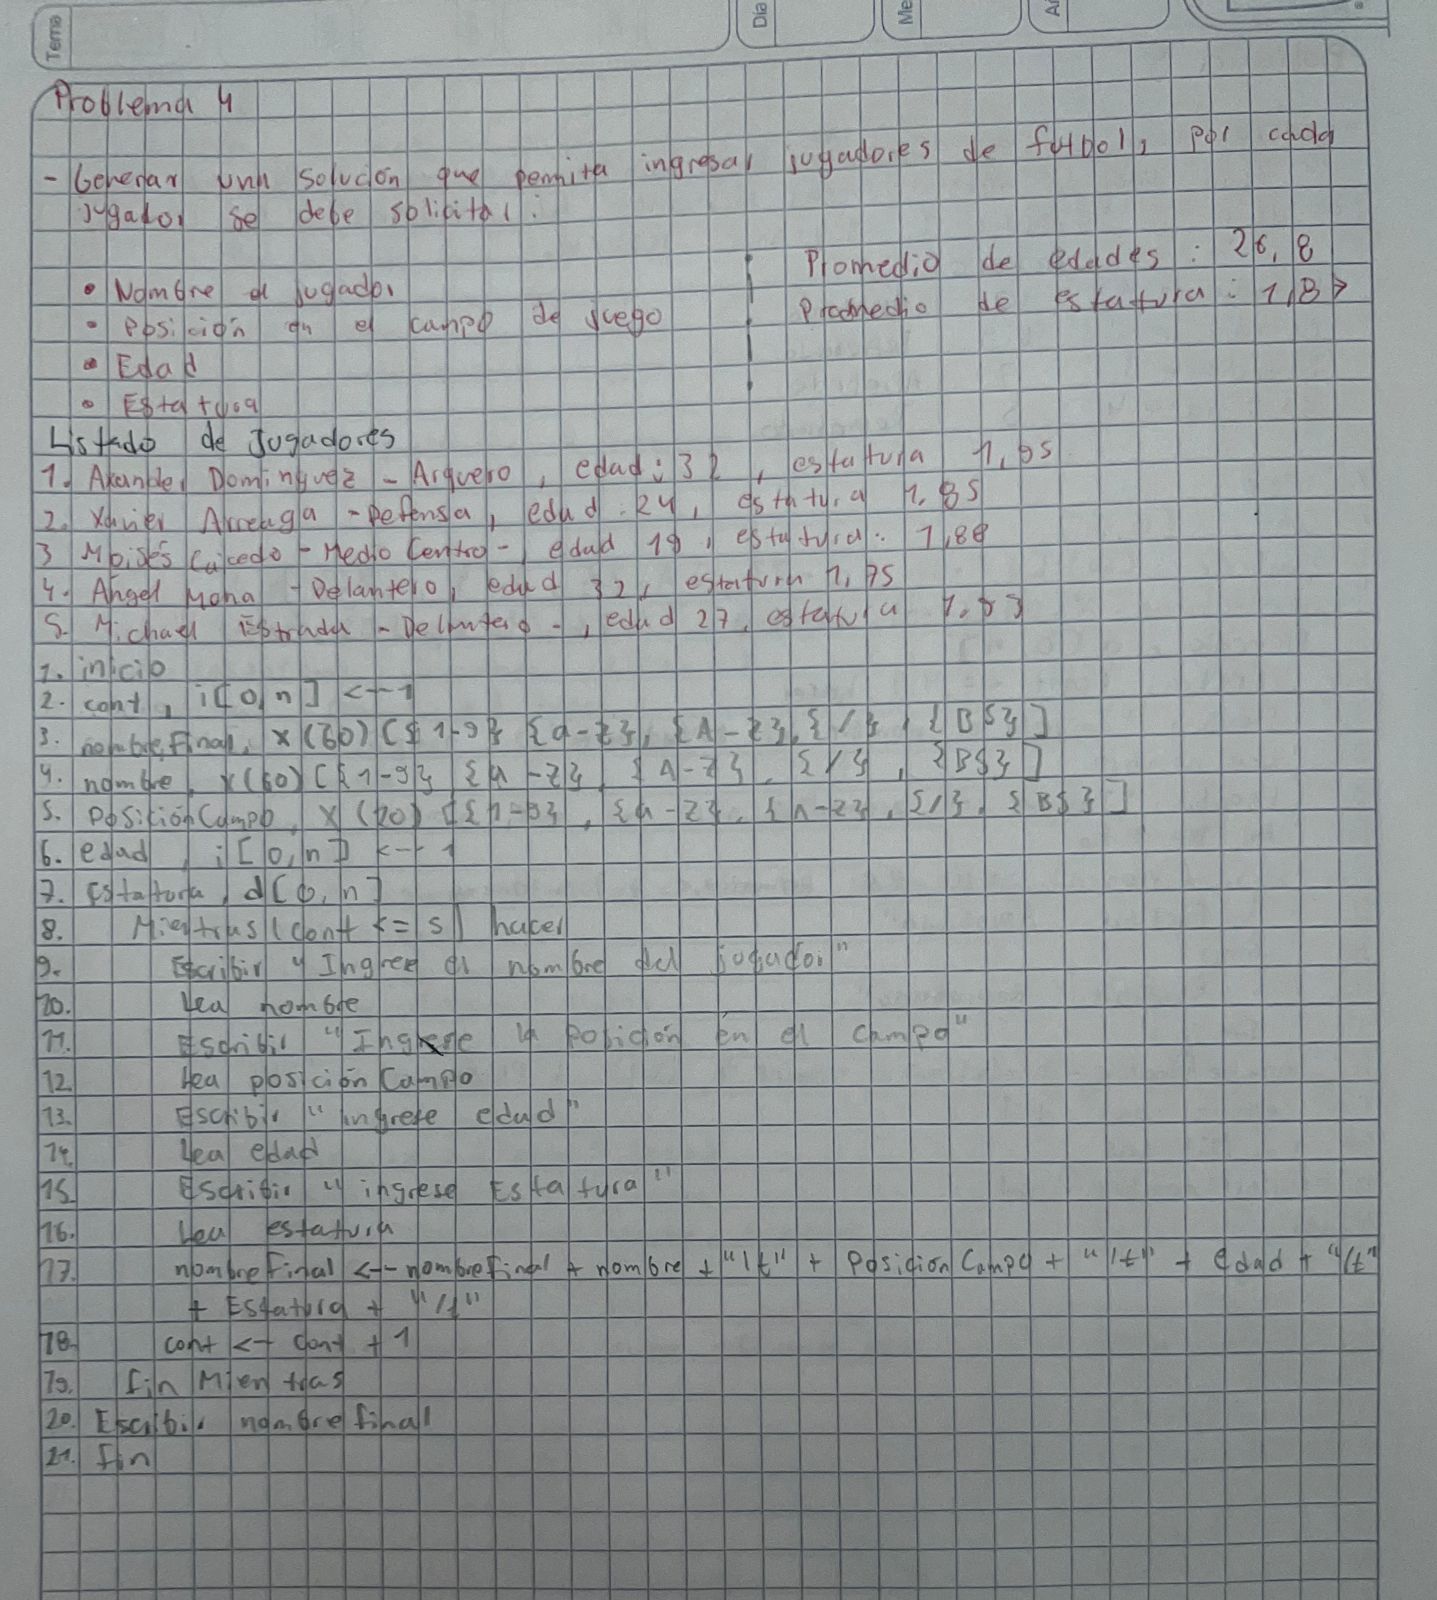 Tema
Dia
Me
Problema 4
- Generar una solución que permita ingresar jugadores de futbol, por cada
jugador se debe solicitar:
• Nombre del jugador
• Posición en el campo de juego
• Edad
• Estatura
Promedio de edades: 26,8
Promedio de estatura:
Listado de Jugadores
1. Dominguez - Arquero, edad: 32, estatura
2. Xavier Arreaga - Defensa, edad: 24, estatura 1,85
3 Moisés Caicedo - Medio Centro - edad 19, estatura: 1,88
4. Angel - Delantero, edad 32, estatura 1,75
5. Michael Estrada - Delantero -, edad 27, estatura
1. inicio
2. cont, i[0,n] <-- 1
3. nombreFinal, x(60) [{1-9} {a-z}, {A-Z}, {/}, {B$}]
4. nombre, x(60) [{1-9}, {a-z}, {A-Z}, {/}, {B$}]
5. PosiciónCampo, x(20) [{1-9}, {a-z}, {A-Z}, {/}, {B$}]
6. edad, i[0,n] <-- 1
7. Estatura, d[0,n]
8. Mientras (cont <= 5) hacer
9. Escribir "Ingree el nombre del jugador"
10. Lea nombre
11. Escribir "Ingrese la Posición en el campo"
12. Lea posiciónCampo
13. Escribir "ingrese edad"
14. Lea edad
15. Escribir "ingrese Estatura"
16. Lea estatura
17. nombreFinal <-- nombreFinal + nombre + "/t" + PosiciónCampo + "/t" + edad + "/t"
+ Estatura + "/t"
18. cont <- cont + 1
19. fin Mientras
20. Escribir nombrefinal
21. fin